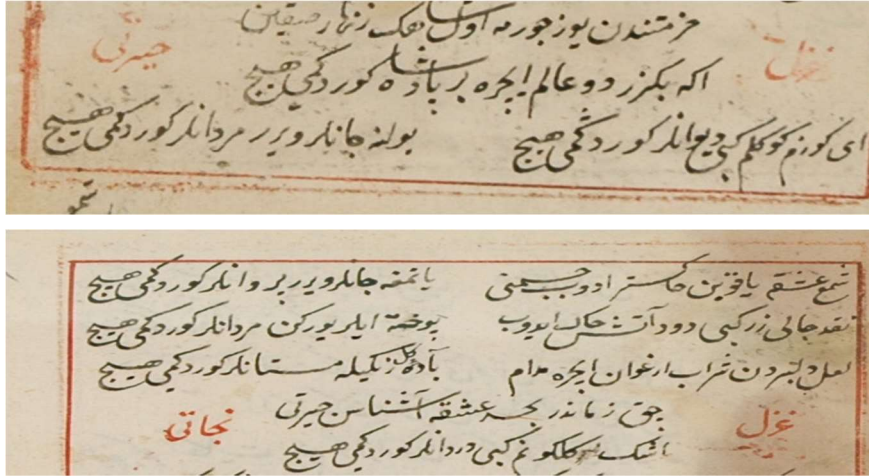 خرمتندن یوز چورمه اول شاهک زنهار صقین
غزل حیرتی
اکه بکزر دو عالم ایچره بر پادشاه کوردکمی هیچ
ای کوزم کوکلم کبی دیوانلر کوردکمی هیچ یولنه جانلر ویرر مردانلر کوردکمی هیچ
شمع عشقه یاقوبن خاکستر ادوب جسمنی یانمغه جانلر ویرر پروانلر کوردکمی هیچ
نقد جانی زر کبی دود آتش خاک ایدوب ایلر یورکن مردانلر کوردکمی هیچ
لعل دلبردن شراب ارغوان ایچره مدام باده کلرنکیله مستانلر کوردکمی هیچ
چق زماندر بحر عشقه آشناسن حیرتی
غزل نجاتی
اشک کلکونم کبی دردانلر کوردکمی هیچ